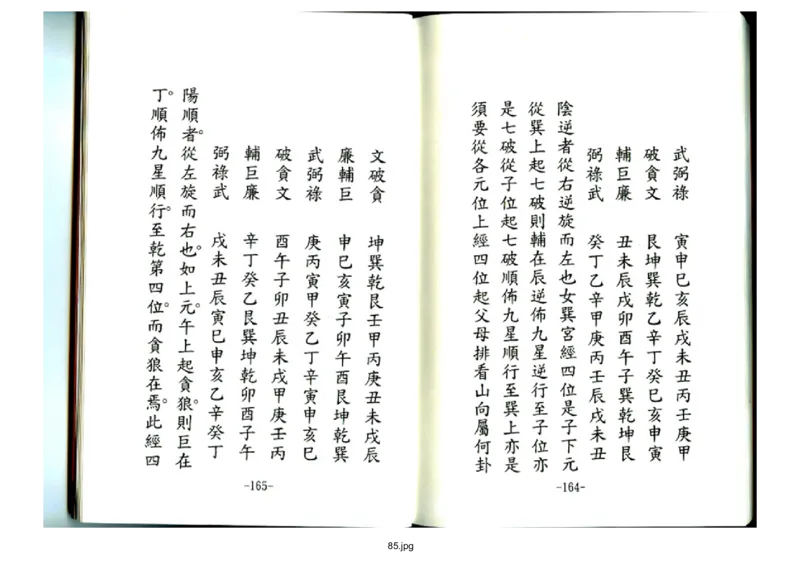 武弼祿　寅申巳亥辰戌未丑丙壬庚甲
破貪文　艮坤巽乾乙辛丁癸巳亥申寅
輔巨廉　丑未辰戌卯酉午子巽乾坤艮
弼祿武　癸丁乙辛甲庚丙壬辰戌未丑
陰逆者從右逆旋而左也女巽宮經四位是子下元
從巽上起七破則輔在辰逆佈九星逆行至子位亦
是七破從子位起七破順佈九星順行至巽上亦是
須要從各元位上經四位起父母排看山向屬何卦
-164-
文破貪　坤巽乾艮壬甲丙庚丑未戌辰
廉輔巨　申巳亥寅子卯午酉艮坤乾巽
武弼祿　庚丙寅甲癸乙丁辛寅申亥巳
破貪文　酉午子卯丑辰未戌甲庚壬丙
輔巨廉　辛丁癸乙艮巽坤乾卯酉子午
弼祿武　戌未丑辰寅巳申亥乙辛癸丁
陽順者。從左旋而右也。如上元。午上起貪狼。則巨在
丁。順佈九星順行。至乾第四位。而貪狼在焉。此經四
-165-
85.jpg